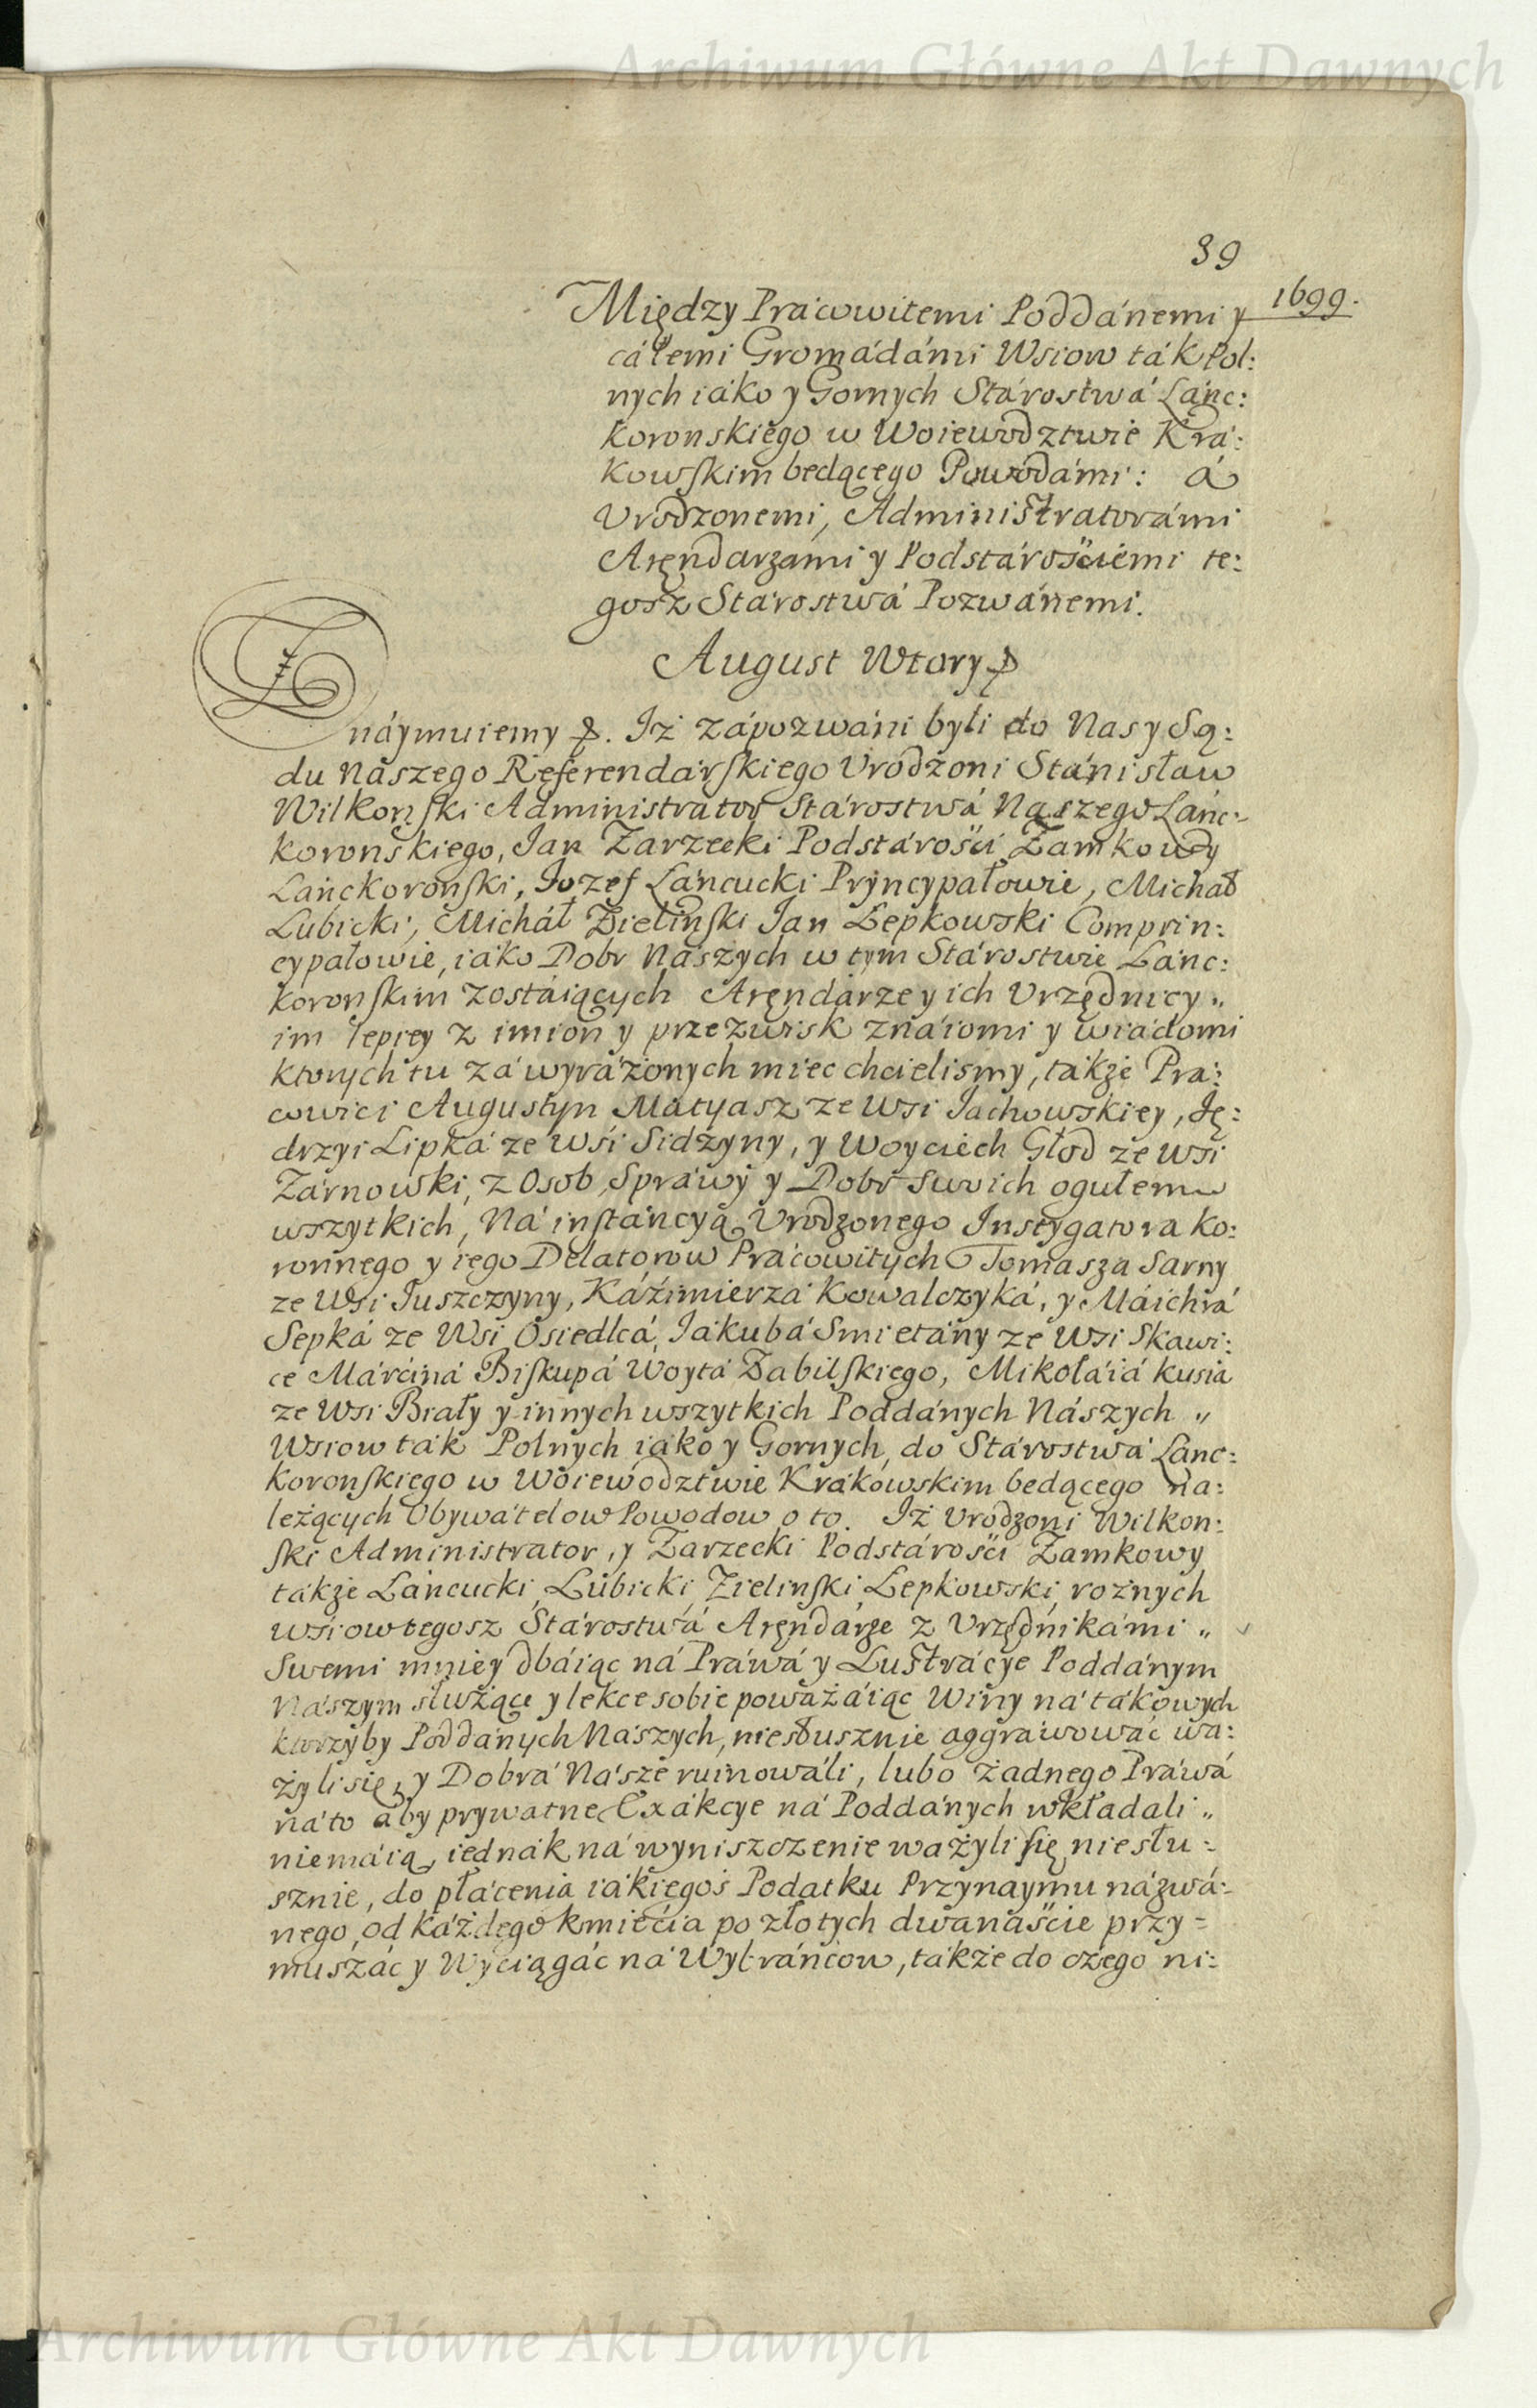 Archiwum Główne Akt Dawnych
39
1699.
Między Prácowitemi Poddánemi y
cáłemi Gromádámi Wsiow ták Pol:
nych iáko y Gornych Stárostwá Lánc:
koronskiego w Woiewodztwie Krá:
kowskim bedącego Powodámi: á
Urodzonemi, Administratorámi
Aręndarzami y Podstárościemi te:
gosz Stárostwá Pozwánemi.
August Wtory
Znáymuiemy. Iż zápozwáni byli do Nas y Są:
du Nászego Referendarskiego Urodzoni Stánisław
Wilkonski Administrator Stárostwá Nászego Lánc:
koronskiego, Jan Zarzecki Podstárości Zamkowy
Lánckoronski, Jozef Láncucki Pryncypałowie, Micháł
Lubicki, Micháł Zielinski Jan Lepkowski Comprin:
cypałowie, iáko Dobr Nászych w tym Stárostwie Lánc:
koronskim zostáiących Aręndárze y ich Urzędnicy „
im lepiey z imion y przezwisk znáiomi y wiádomi
ktorych tu zá wyráżonych miec chcielismy, także Prá:
cowici Augustyn Matyasz ze Wsi Jachowskiey, Ję:
drzyi Lipká ze Wsi Sidżyny, y Woyciech Głod ze Wsi
Zárnowski, z Osob, Spráwy y Dobr swoich ogułem
wszytkich, Ná instáncyą Urodzonego Instygatora Ko:
ronnego y iego Delatorow Prácowitych Tomasza Sarny
ze Wsi Juszczyny, Káźimierzá Kowalczyká, y Máichrá
Sepká ze Wsi Osiedlcá, Jákubá Smietány ze Wsi Skawi:
ce Márciná Biskupá Woytá Zabilskiego, Mikołáiá Kusia
ze Wsi Biały y innych wszytkich Poddánych Nászych „
Wsiow ták Polnych iáko y Gornych, do Stárostwá Lánc:
koronskiego w Woiewodztwie Krákowskim bedącego ná:
leżących Obywátelow Powodow o to. Iż Urodzoni Wilkon:
ski Administrator, y Zarzecki Podstárości Zamkowy
także Láncucki, Lubicki, Zielinski, Lepkowski, rożnych
wsiow tegosz Stárostwá Aręndárze z Urzędnikámi „
Swemi mniey dbáiąc ná Práwá y Lustrácye Poddánym
Nászym służące y lekce sobie poważáiąc Winy ná tákowych
ktorzyby Poddánych Nászych, niesłusznie aggrawowáć wa:
żyli się, y Dobrá Násze ruinowáli, lubo żadnego Práwá
ná to aby prywatne Exákcye ná Poddánych wkładali „
niemáią, iednák ná wyniszczenie ważyli się niesłu:
sznie, do płácenia iákiegoś Podatku Przynaymu názwá:
nego, od káżdego kmiecia po złotych dwanáście przy:
muszáć y Wyciągáć ná Wybráńcow, także do czego ni:
Archiwum Główne Akt Dawnych